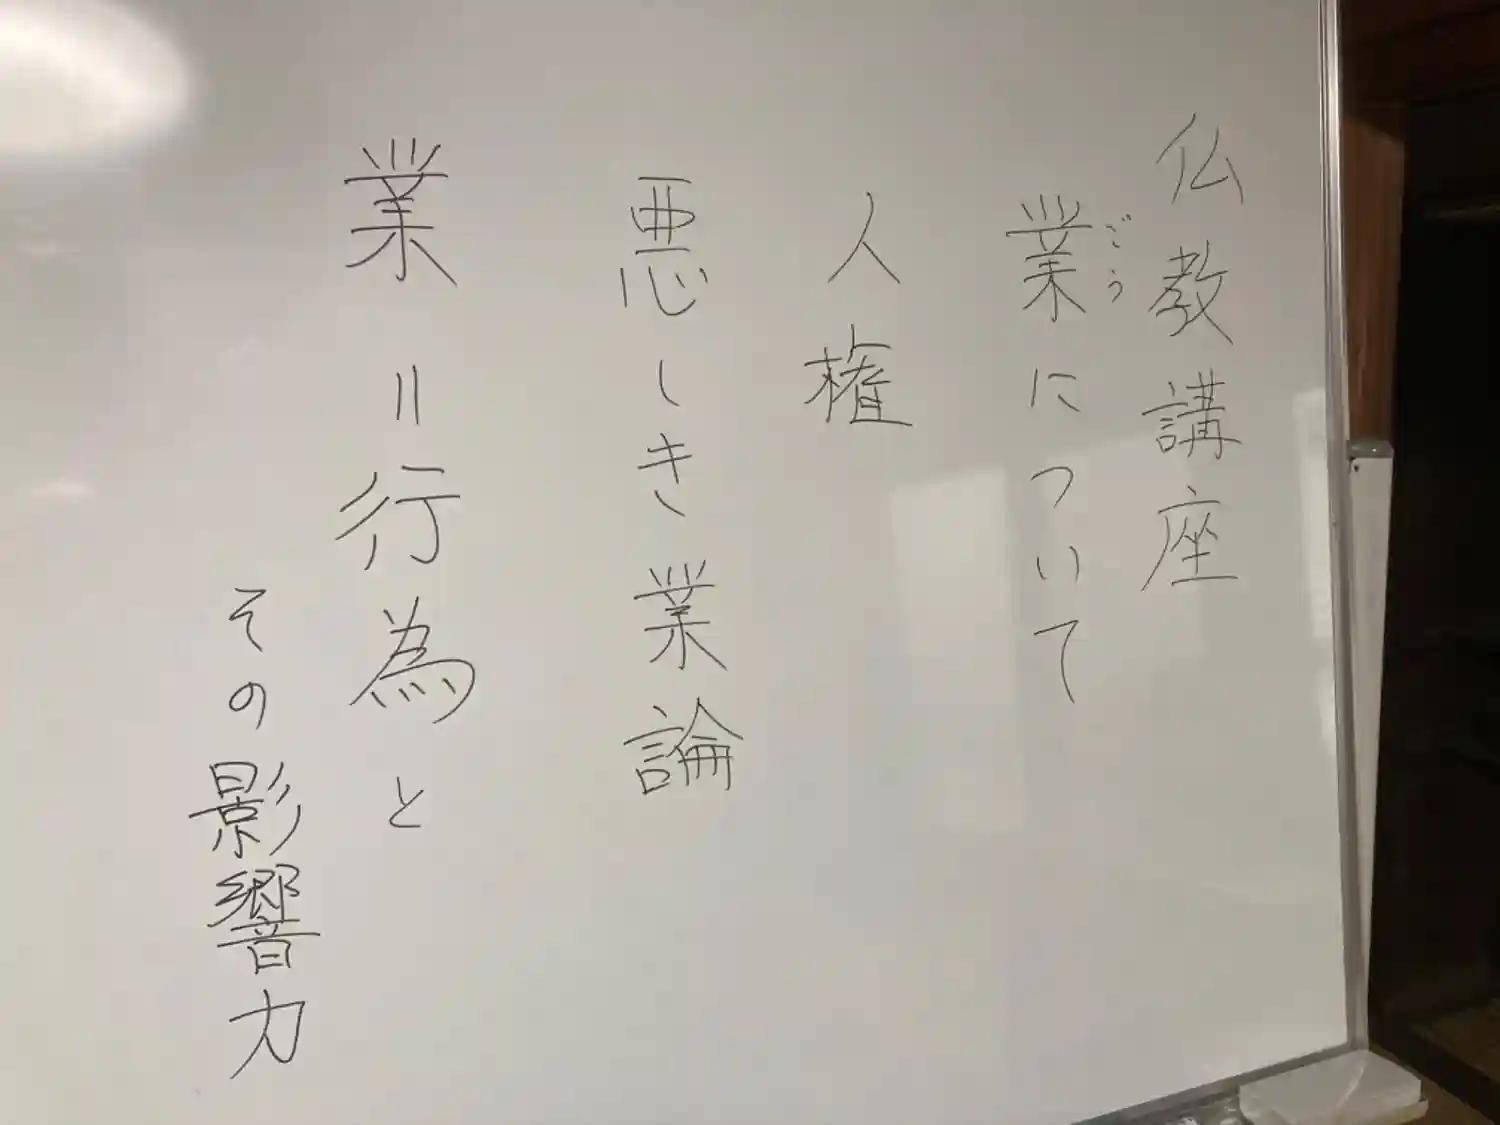 仏教講座
業について
ごう
人権
悪しき業論
業=行為と
その影響力